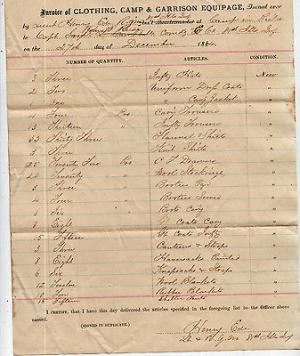 Invoice of CLOTHING, CAMP & GARRISON EQUIPAGE, Turned over
by Lieut Henry Coe
to Capt
on the 27th day of December 1864
NUMBER OR QUANTITY. ARTICLES. CONDITION.
3 Three Infty New
2 Two Uniform Coats "
Cavy Jacket "
4 Four Prs Cavy Trousers "
13 Thirteen " Infty Trousers "
33 Thirty Three Flannel Shirts "
3 Three Knit Shirts "
22 Twenty Two Prs C F Drawers "
20 Twenty " Wool Stockings "
3 Three " Bootees "
4 Four " Bootees Sewed "
6 Six " Boots Cavy "
8 Eight Coats Cavy "
15 Fifteen Coats Infty "
3 Three Canteens & Straps "
8 Eight Haversacks Painted "
6 Six Knapsacks & Straps "
12 Twelve Wool Blankets "
Rubber Blankets "
15 Fifteen Shelter Tents "
I CERTIFY, that I have this day delivered the articles specified in the foregoing list to the Officer above
named.
(SIGNED IN DUPLICATE.)
Henry Coe